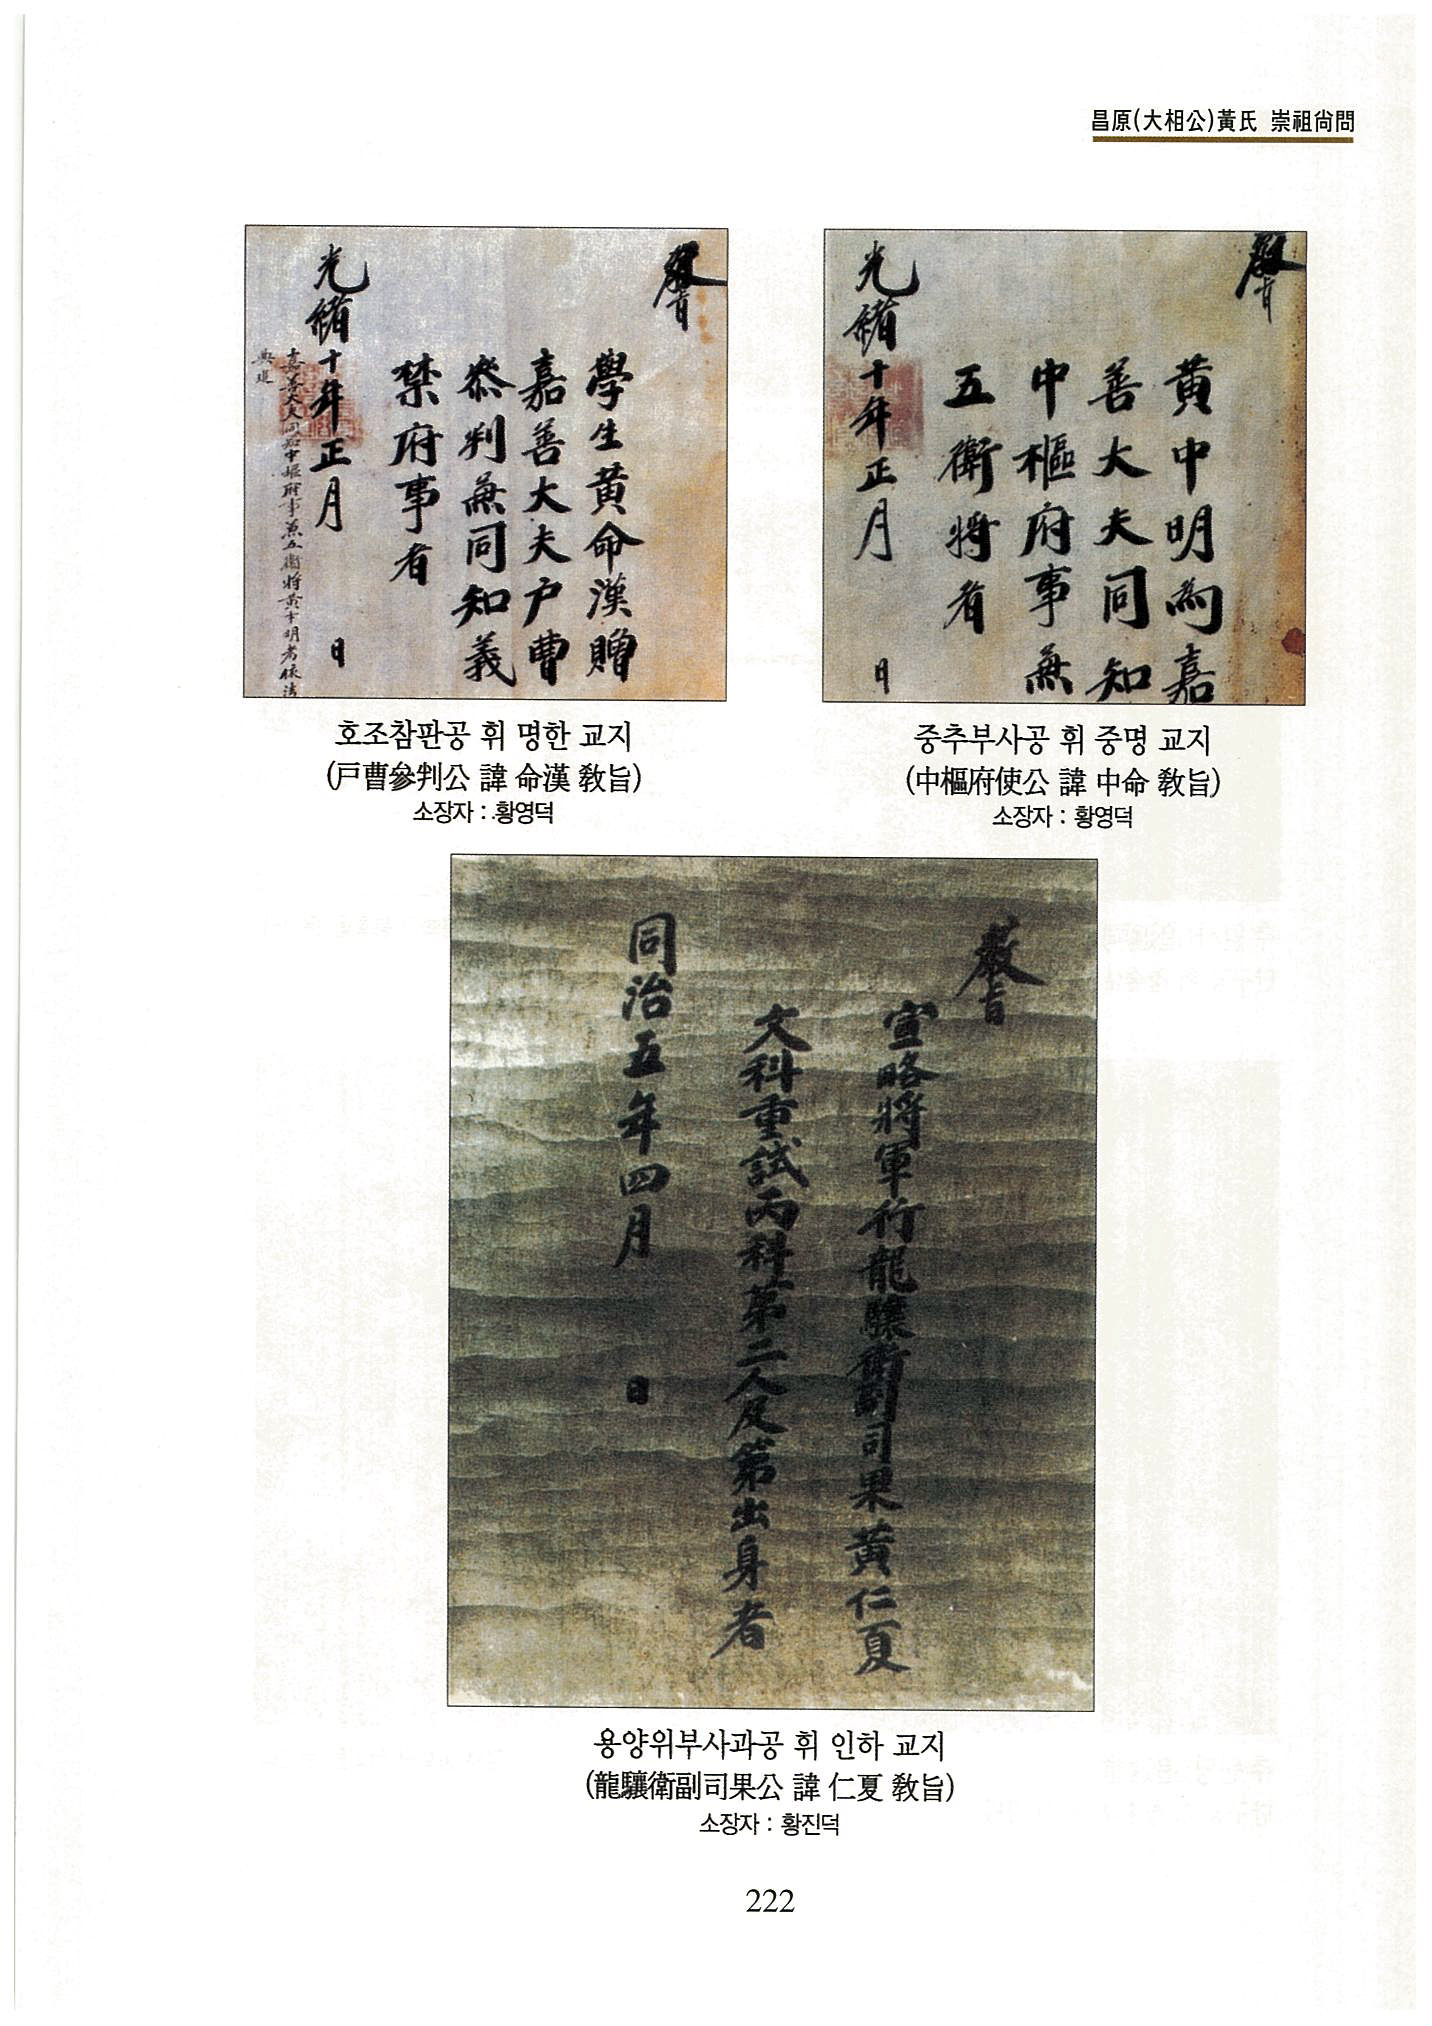 昌原(大相公)黃氏 崇祖尙問
敎旨
學生黃命漢贈
嘉善大夫戶曹
叅判兼同知義
禁府事者
光緖十年正月 日
嘉善大夫同知中樞府事兼五衛將黃中明考依法
典追
호조참판공 휘 명한 교지
(戶曹參判公 諱 命漢 敎旨)
소장자 : 황영덕
敎旨
黃中明爲嘉
善大夫同知
中樞府事兼
五衛將者
光緖十年正月 日
중추부사공 휘 중명 교지
(中樞府使公 諱 中命 敎旨)
소장자 : 황영덕
敎旨
宣略將軍行龍驤衛副司果黃仁夏
文科重試丙科第二人及第出身者
同治五年四月 日
용양위부사과공 휘 인하 교지
(龍驤衛副司果公 諱 仁夏 敎旨)
소장자 : 황진덕
222